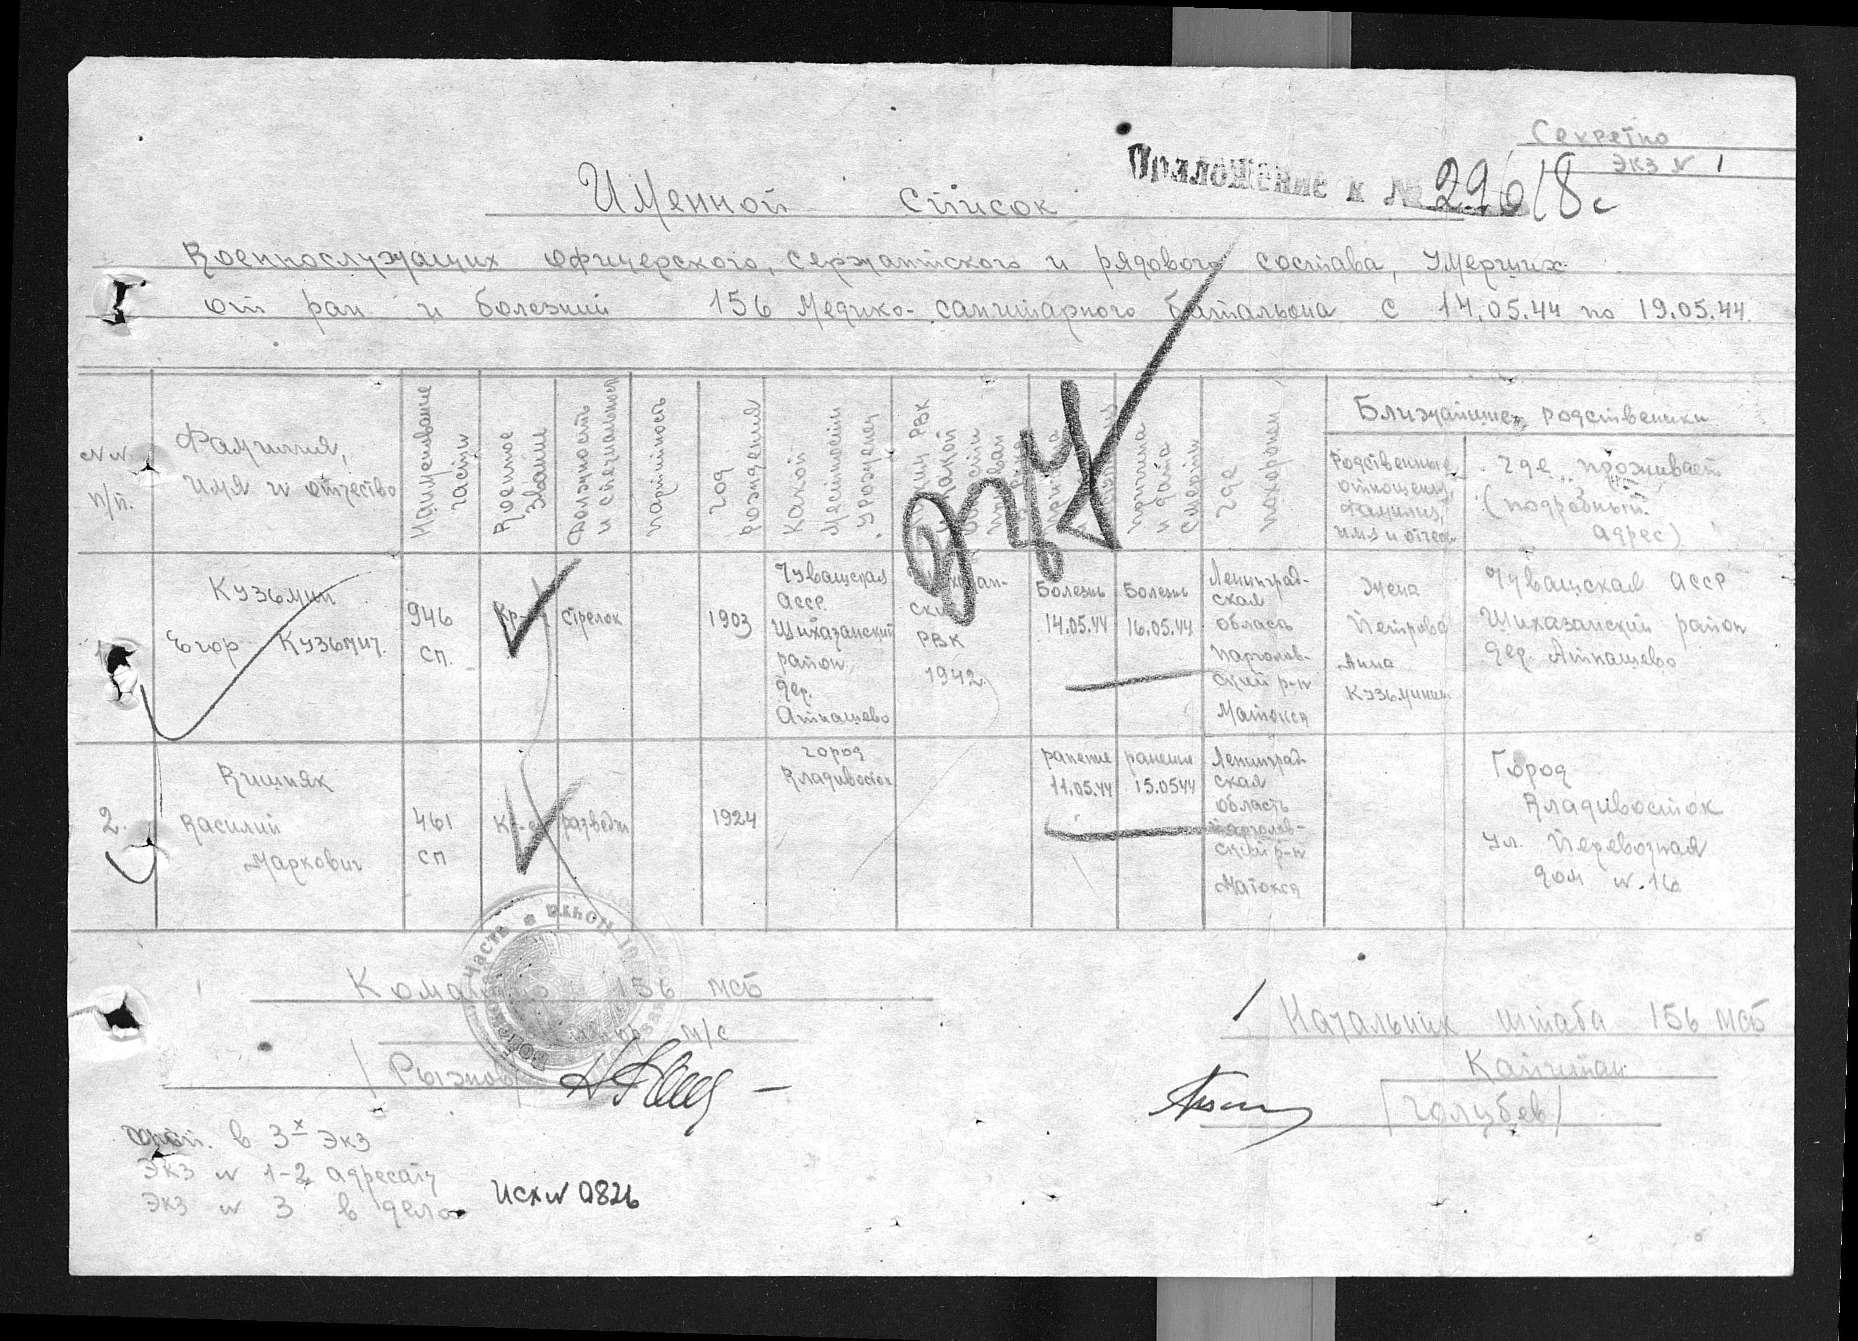 Секретно
Экз № 1
Приложение к № 29618с
Именной список
Военнослужащих офицерского, сержантского и рядового состава, умерших
от ран и болезний 156 Медико-санитарного батальона с 14.05.44 по 19.05.44
№№ п/п.
Фамилия,
имя и отчество
Наименование
части
Военное
звание
Должность
и специальность
партийность
год
рождения
Какой
местности
уроженец
РВК
причина
и дата
смерти
где
похоронен
Ближайшие родственики
Родственные
отношения,
фамилия,
имя и отчес
где проживает
(подробный
адрес)
Кузьмин
Егор Кузьмич.
946
сп.
Кр-
стрелок
1903
Чувашская
АССР
Шихазанский
район
дер.
Атнашево
РВК
1942
Болезнь
14.05.44
Болезнь
16.05.44
Ленинград-
ская
область
парголов-
ский р-н
Матокса
Жена
Петрова
Анна
Кузьминич
Чувашская АССР
Шихазанский район
дер. Атнашево
2.
Вишняк
Василий
Маркович
461
сп
разведч
1924
город
Владивосток
ранение
11.05.44
ранение
15.0544
Ленинград-
ская
область
парголов-
ский р-н
Матокса
Город
Владивосток
ул. Перевозная
дом №.16
156 мсб
м/с
Начальник штаба 156 мсб
Капитан
/Голубев/
в 3х экз
Экз № 1-2 адресату
Экз № 3 в дело
Исх№ 0826